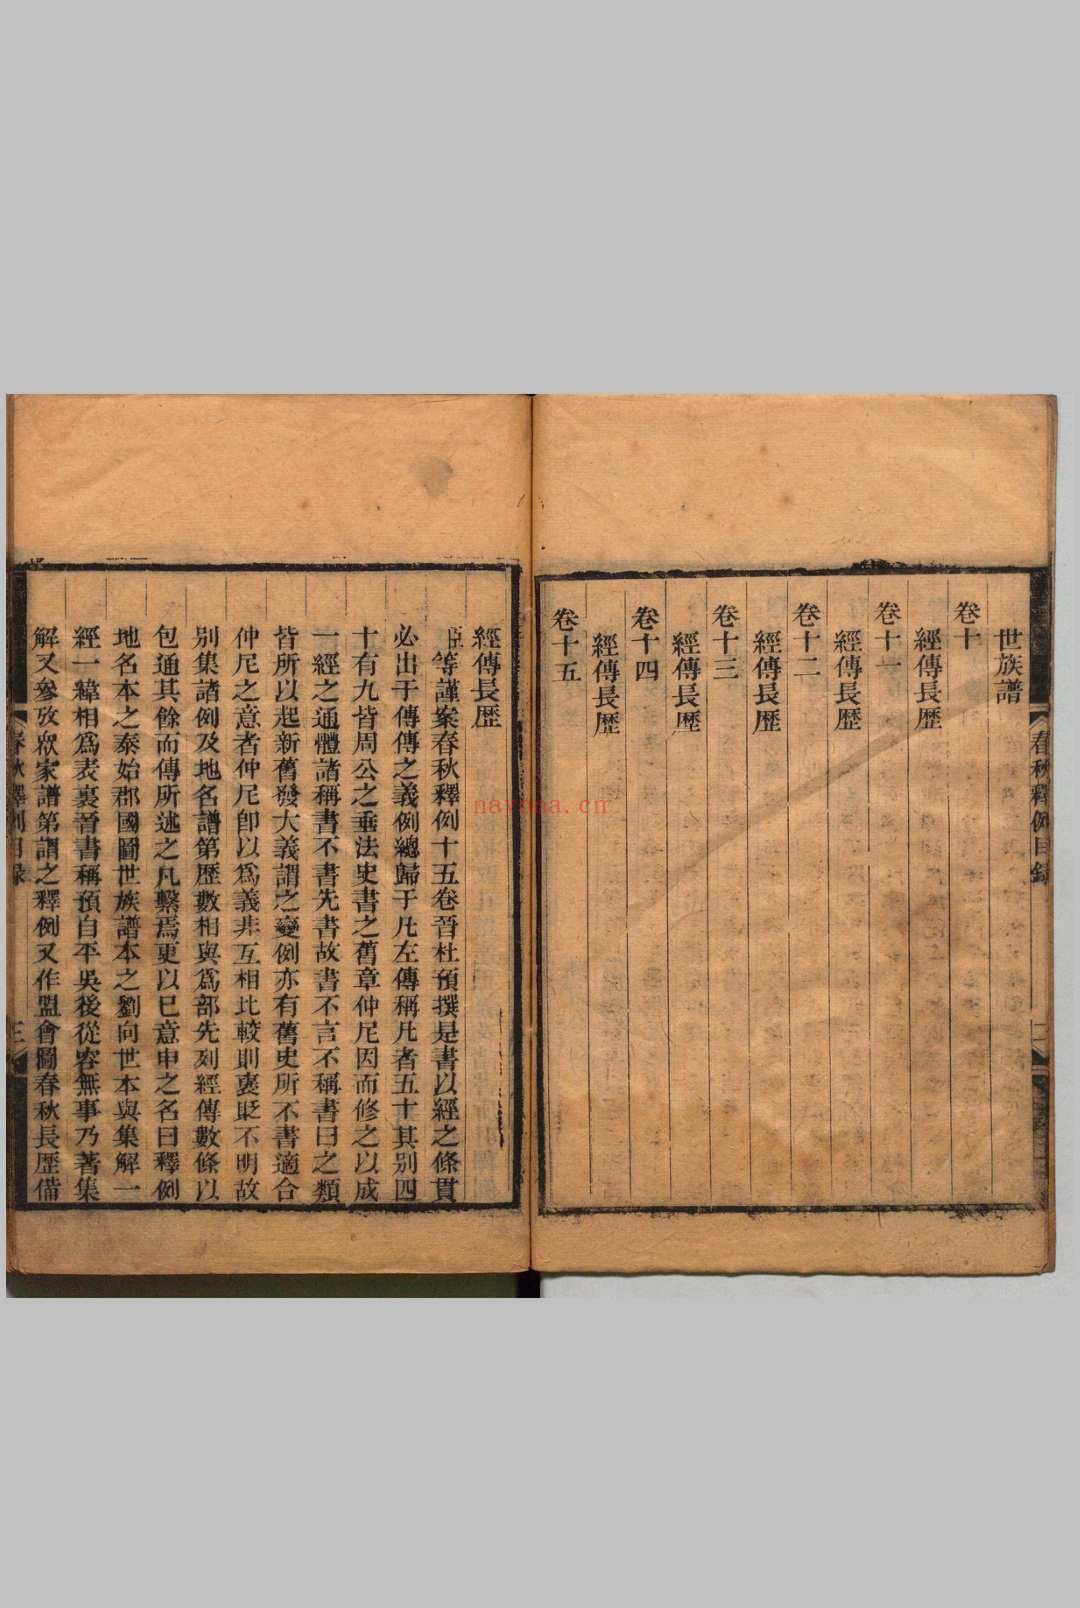 春秋釋例目録
二
世族譜
卷十
經傳長歷
卷十一
經傳長歷
卷十二
經傳長歷
卷十三
經傳長歷
卷十四
經傳長歷
卷十五
經傳長歷
臣等謹案春秋釋例十五卷晉杜預撰是書以經之條貫
必出于傳傳之義例總歸于凡左傳稱凡者五十其别四
十有九皆周公之垂法史書之舊章仲尼因而修之以成
一經之通體諸稱書不書先書故書不言不稱書曰之類
皆所以起新舊發大義謂之變例亦有舊史所不書適合
仲尼之意者仲尼卽以爲義非互相比較則襃貶不明故
别集諸例及地名譜第歷數相與爲部先列經傳數條以
包通其餘而傳所述之凡繫焉更以已意申之名曰釋例
地名本之泰始郡國圖世族譜本之劉向世本與集解一
經一緯相爲表裏晉書稱預自平吳後從容無事乃著集
解又參攷衆家譜第謂之釋例又作盟會圖春秋長歷備
春秋釋例目録
三
nayona.cn